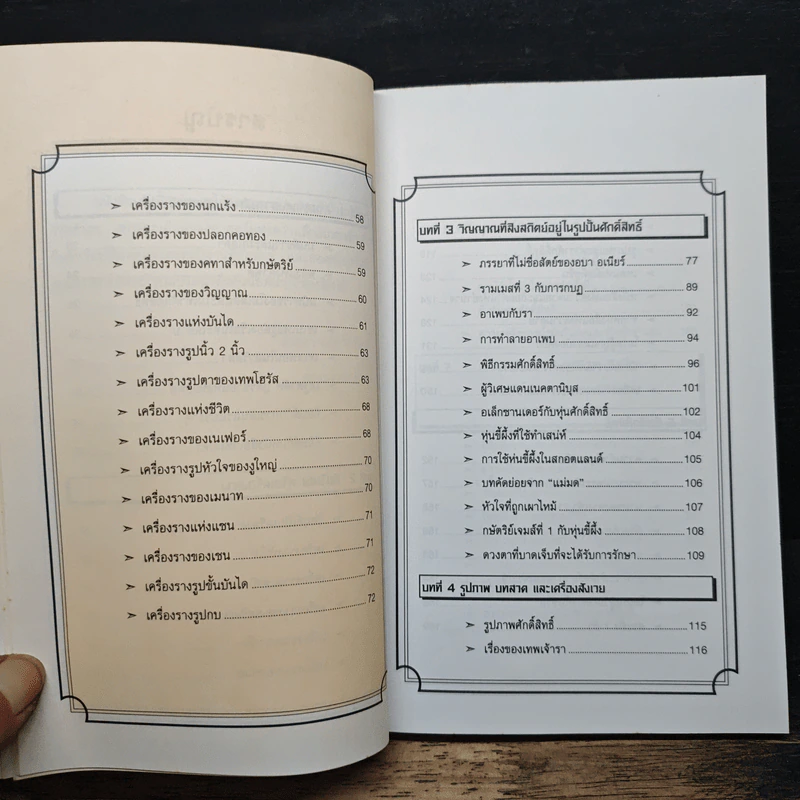 ➣ เครื่องรางของนกแร้ง 58
➣ เครื่องรางของปลอกคอทอง 59
➣ เครื่องรางของคทาสำหรับกษัตริย์ 59
➣ เครื่องรางของวิญญาณ 60
➣ เครื่องรางแห่งบันได 61
➣ เครื่องรางรูปนิ้ว 2 นิ้ว 63
➣ เครื่องรางรูปตาของเทพโฮรัส 63
➣ เครื่องรางแห่งชีวิต 68
➣ เครื่องรางของเนเฟอร์ 68
➣ เครื่องรางรูปหัวใจของงูใหญ่ 70
➣ เครื่องรางของเมนาท 70
➣ เครื่องรางแห่งแซน 71
➣ เครื่องรางของเชน 71
➣ เครื่องรางรูปขั้นบันได 72
➣ เครื่องรางรูปกบ 72
บทที่ 3 วิญญาณที่สิงสถิตย์อยู่ในรูปปั้นศักดิ์สิทธิ์
➣ ภรรยาที่ไม่ซื่อสัตย์ของอบา อเนียร์ 77
➣ รามเมสที่ 3 กับการกบฏ 89
➣ อาเพบกับรา 92
➣ การทำลายอาเพบ 94
➣ พิธีกรรมศักดิ์สิทธิ์ 96
➣ ผู้วิเศษแดนเนคตานิบุส 101
➣ อเล็กซานเดอร์กับหุ่นศักดิ์สิทธิ์ 102
➣ หุ่นขี้ผึ้งที่ใช้ทำเสน่ห์ 104
➣ การใช้หุ่นขี้ผึ้งในสกอตแลนด์ 105
➣ บทคัดย่อยจาก “แม่มด” 106
➣ หัวใจที่ถูกเผาไหม้ 107
➣ กษัตริย์เจมส์ที่ 1 กับหุ่นขี้ผึ้ง 108
➣ ดวงตาที่บาดเจ็บที่จะได้รับการรักษา 109
บทที่ 4 รูปภาพ บทสวด และเครื่องสังเวย
➣ รูปภาพศักดิ์สิทธิ์ 115
➣ เรื่องของเทพเจ้ารา 116